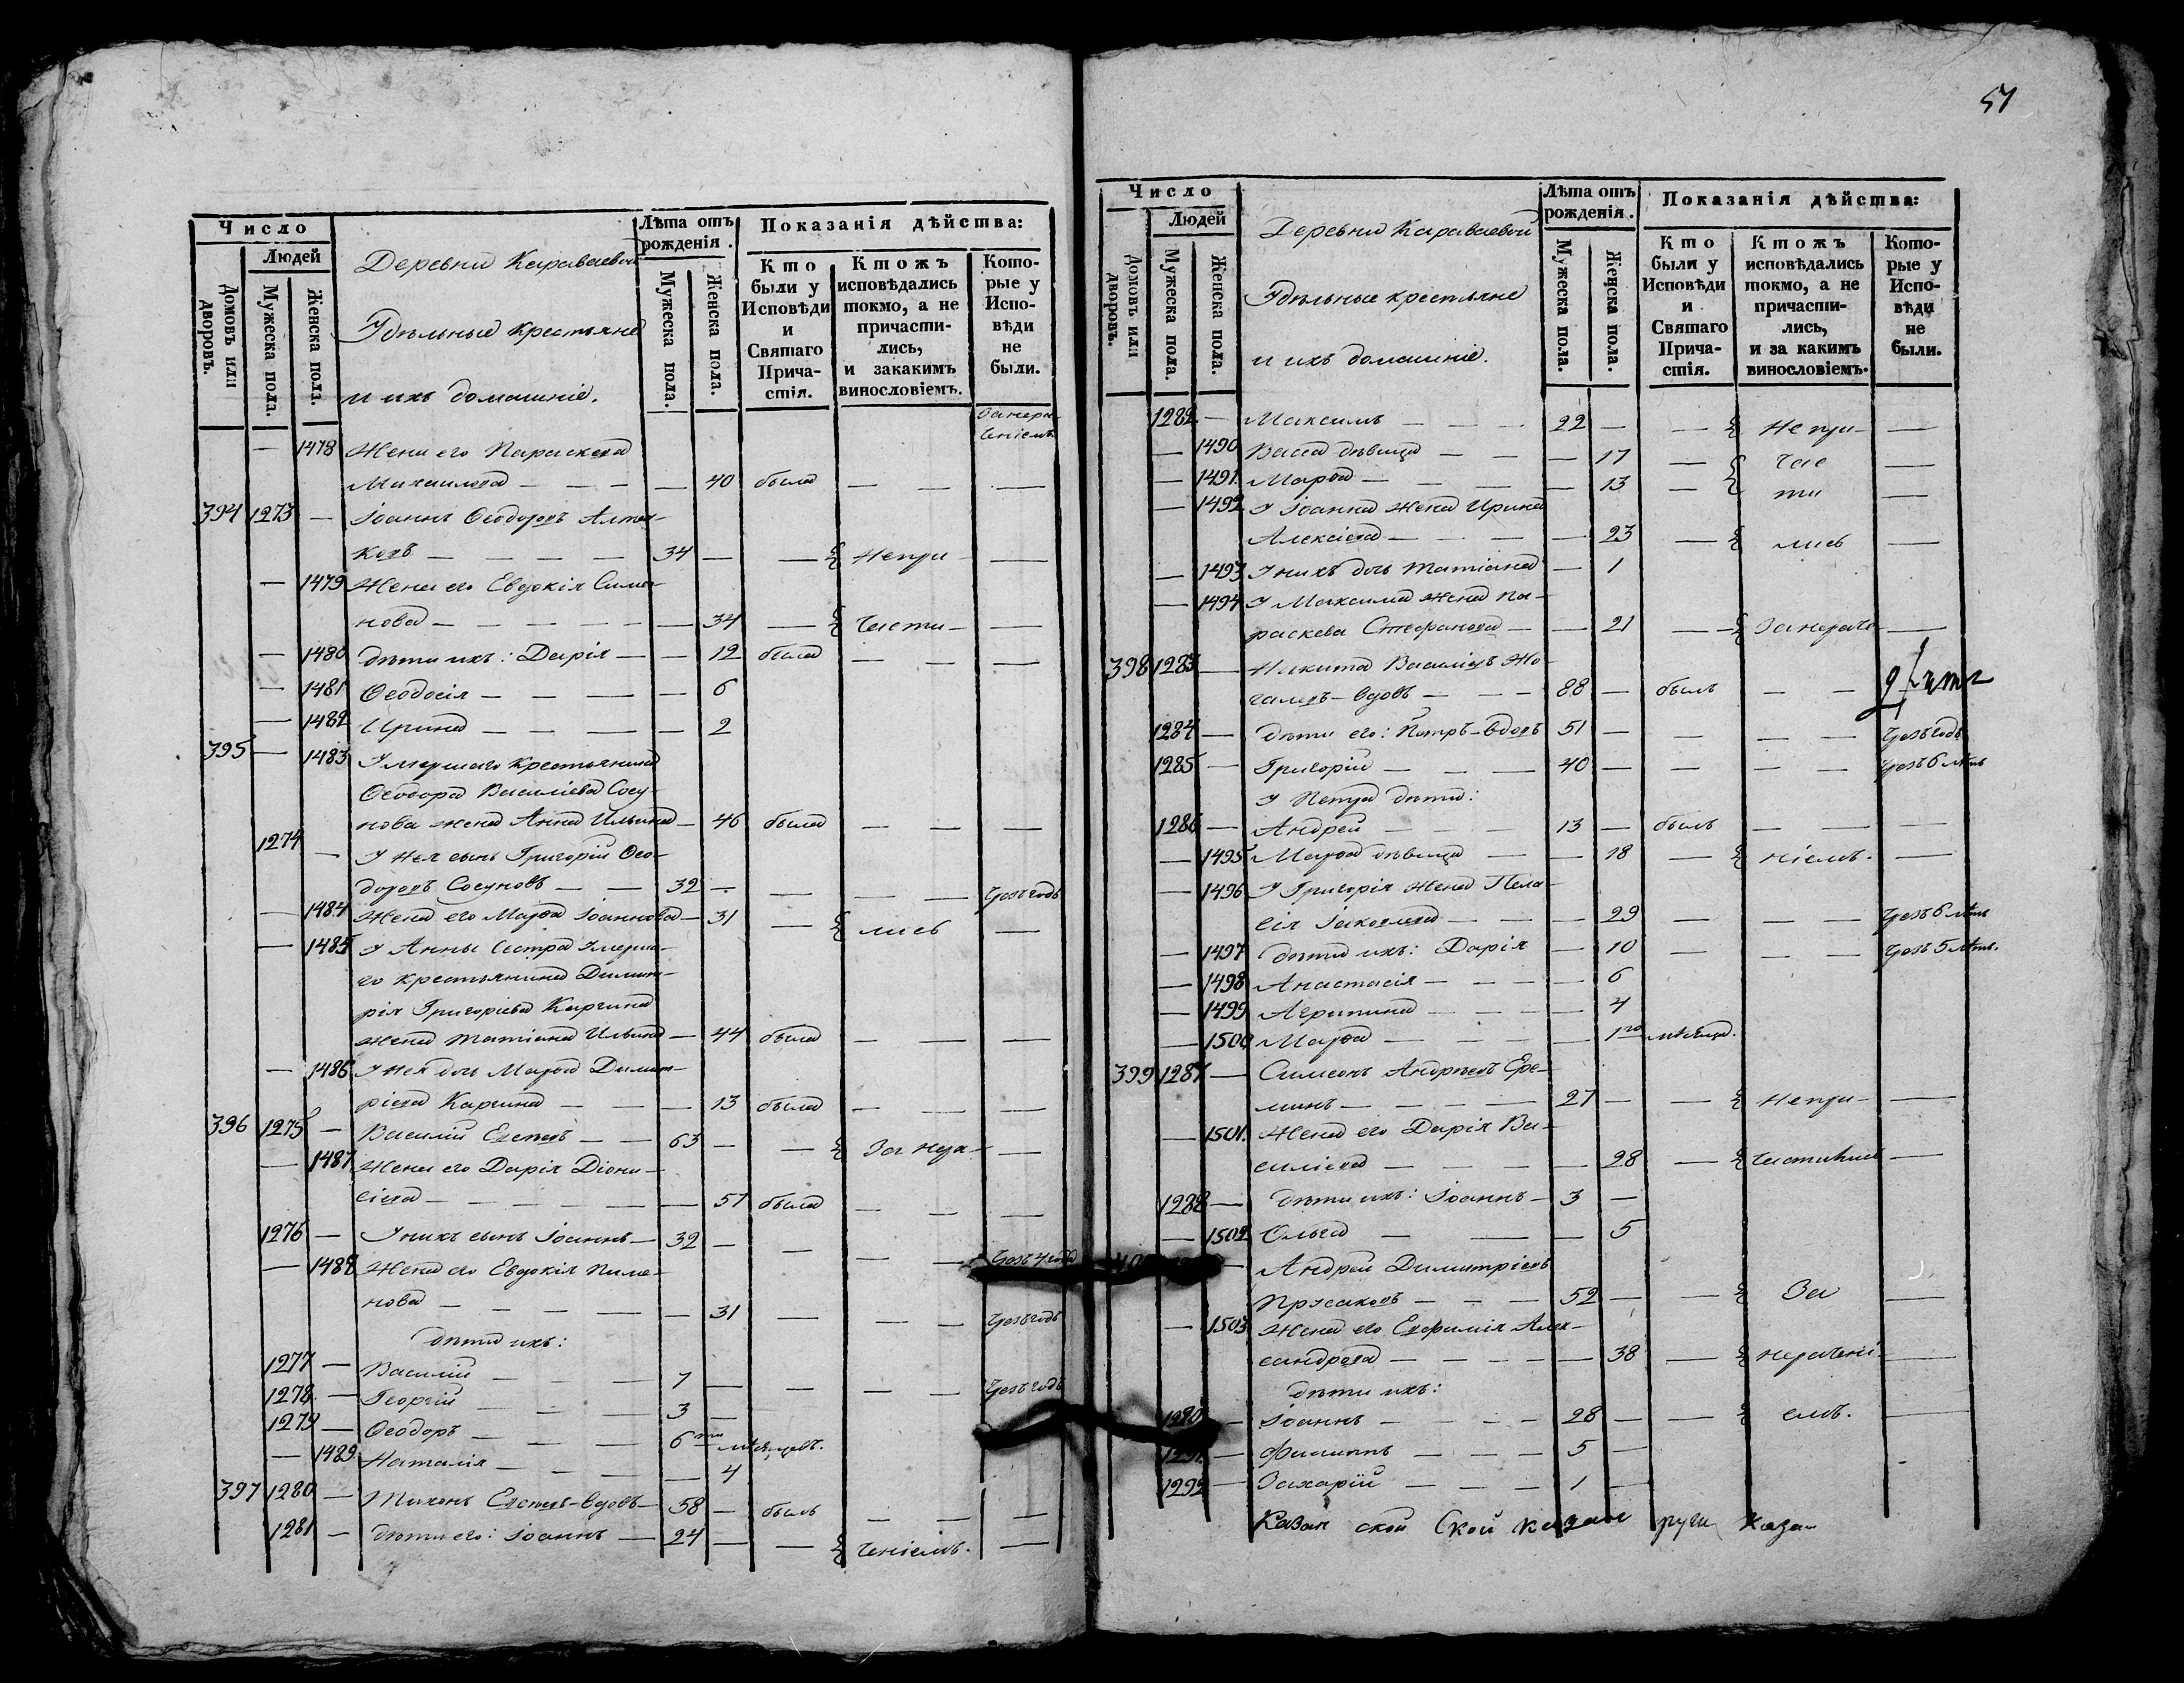 Число
Лѣта отъ рожденія.
Показанія дѣйства:
Домовъ или дворовъ.
Людей
Мужеска пола.
Женска пола.
Деревни Караваевой
Удѣльные крестьяне
и ихъ домашніе.
Мужеска пола.
Женска пола.
Кто были у Исповѣди и Святаго Причастія.
Ктожъ исповѣдались токмо, а не причастились, и закакимъ винословіемъ.
Которые у Исповѣди не были.
— 1478 Жена его Параскева
Михаилова — — — — 40 была — — —
394 1273 — Іоаннъ Ѳеодоровъ
34 — — непри — —
— 1479 Жена его Евдокія Симо-
нова — — — — 34 — части — —
— 1480 дѣти ихъ: Дарія — — 12 была — — —
— 1481 Ѳеодосія — — — — 6
— 1482 Ирина — — — — 2
395 — 1483 Умершаго крестьянина
Ѳеодора Василіева Сосу-
нова жена Анна Ильина — 46 была — — —
1274 — У нея сынъ Григорій Ѳео-
доровъ Сосуновъ — — 32 — — — — Чрезъ годъ
— 1484 Жена его Марѳа Іоаннова — 31 — лись —
— 1485 У Анны сестра умерша-
го крестьянина Димит-
рія Григоріева Каргина
жена Татіана Ильина — 44 была — — —
— 1486 У нея дочь Марѳа Димит-
ріева Каргина — — — 13 была — — —
396 1275 — Василій — — 63 — — За нера- —
— 1487 Жена его Дарія Діони-
сіева — — — — 57 была — — —
1276 — У нихъ сынъ Іоаннъ — 32 — — — — Чрезъ 4 года
— 1488 Жена его Евдокія Пиме-
нова — — — — 31 — — — Чрезъ годъ
дѣти ихъ:
1277 — Василій — — — 7 — — — — Чрезъ годъ
1278 — Георгій — — — 3 —
1279 — Ѳеодоръ — — — 6ти мѣсяцевъ.
— 1489 Наталія — — — — 4
397 1280 — Тихонъ — вдовъ — 58 — былъ — — —
1281 — дѣти его: Іоаннъ — 24 — — ченіемъ. —
57
Число
Лѣта отъ рожденія.
Показанія дѣйства:
Домовъ или дворовъ.
Людей
Мужеска пола.
Женска пола.
Деревни Караваевой
Удѣльные крестьяне
и ихъ домашніе.
Мужеска пола.
Женска пола.
Кто были у Исповѣди и Святаго Причастія.
Ктожъ исповѣдались токмо, а не причастились, и за какимъ винословіемъ.
Которые у Исповѣди не были.
1282 — Максимъ — — — 22 — — Непри- —
— 1490 Васса дѣвица — — — 17 — час —
— 1491 Марѳа — — — — 13 — ти —
— 1492 У Іоанна жена Ирина
Алексіева — — — — 23 — лись —
— 1493 У нихъ дочь Татіана — 1
— 1494 У Максима жена Па-
раскева Стефанова — — 21 — За нераче- —
398 1283 — Никита Василіевъ
вдовъ — — — 88 — былъ — —
1284 — дѣти его: Петръ — вдовъ 51 — — — — Чрезъ годъ
1285 — Григорій — — — 40 — — — — Чрезъ 6 лѣтъ
У Петра дѣти:
1286 — Андрей — — — 13 — былъ — — —
— 1495 Марѳа дѣвица — — 18 — ніемъ. —
— 1496 У Григорія жена Пела-
гія Іаковлева — — — 29 — — — Чрезъ 6 лѣтъ
— 1497 дѣти ихъ: Дарія — 10 — — — Чрезъ 5 лѣтъ.
— 1498 Анастасія — — — 6
— 1499 Агрипина — — — 4
— 1500 Марѳа — — — — 1го мѣсяца.
399 1287 — Симеонъ Андреевъ Ере-
минъ — — — — 27 — — Непри- —
— 1501 Жена его Дарія Ва-
силіева — — — — 28 — частились —
1288 — дѣти ихъ: Іоаннъ — 3 —
— 1502 Ольга — — — 5
Андрей Димитріевъ
Прусаковъ — — — 52 — — За —
— 1503 Жена его Евфимія Алек-
сандрова — — — — 38 — нерачені- —
дѣти ихъ:
1290 — Іоаннъ — — — — 28 — — емъ. —
1291 — Филиппъ — — — 5 —
1292 — Захарій — — — 1 —
Казан ской Ской казан руги Каза